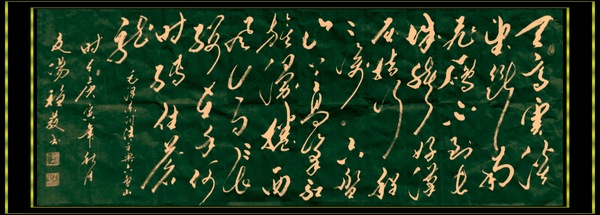 天高雲淡
望斷南
飛雁不到長
城非好漢
屈指行程
二萬六盤
山上高峰紅
旗漫捲西
風今日長
纓在手何
時縛住蒼
龍
毛澤東詞清平樂六盤山
時在庚寅年秋月